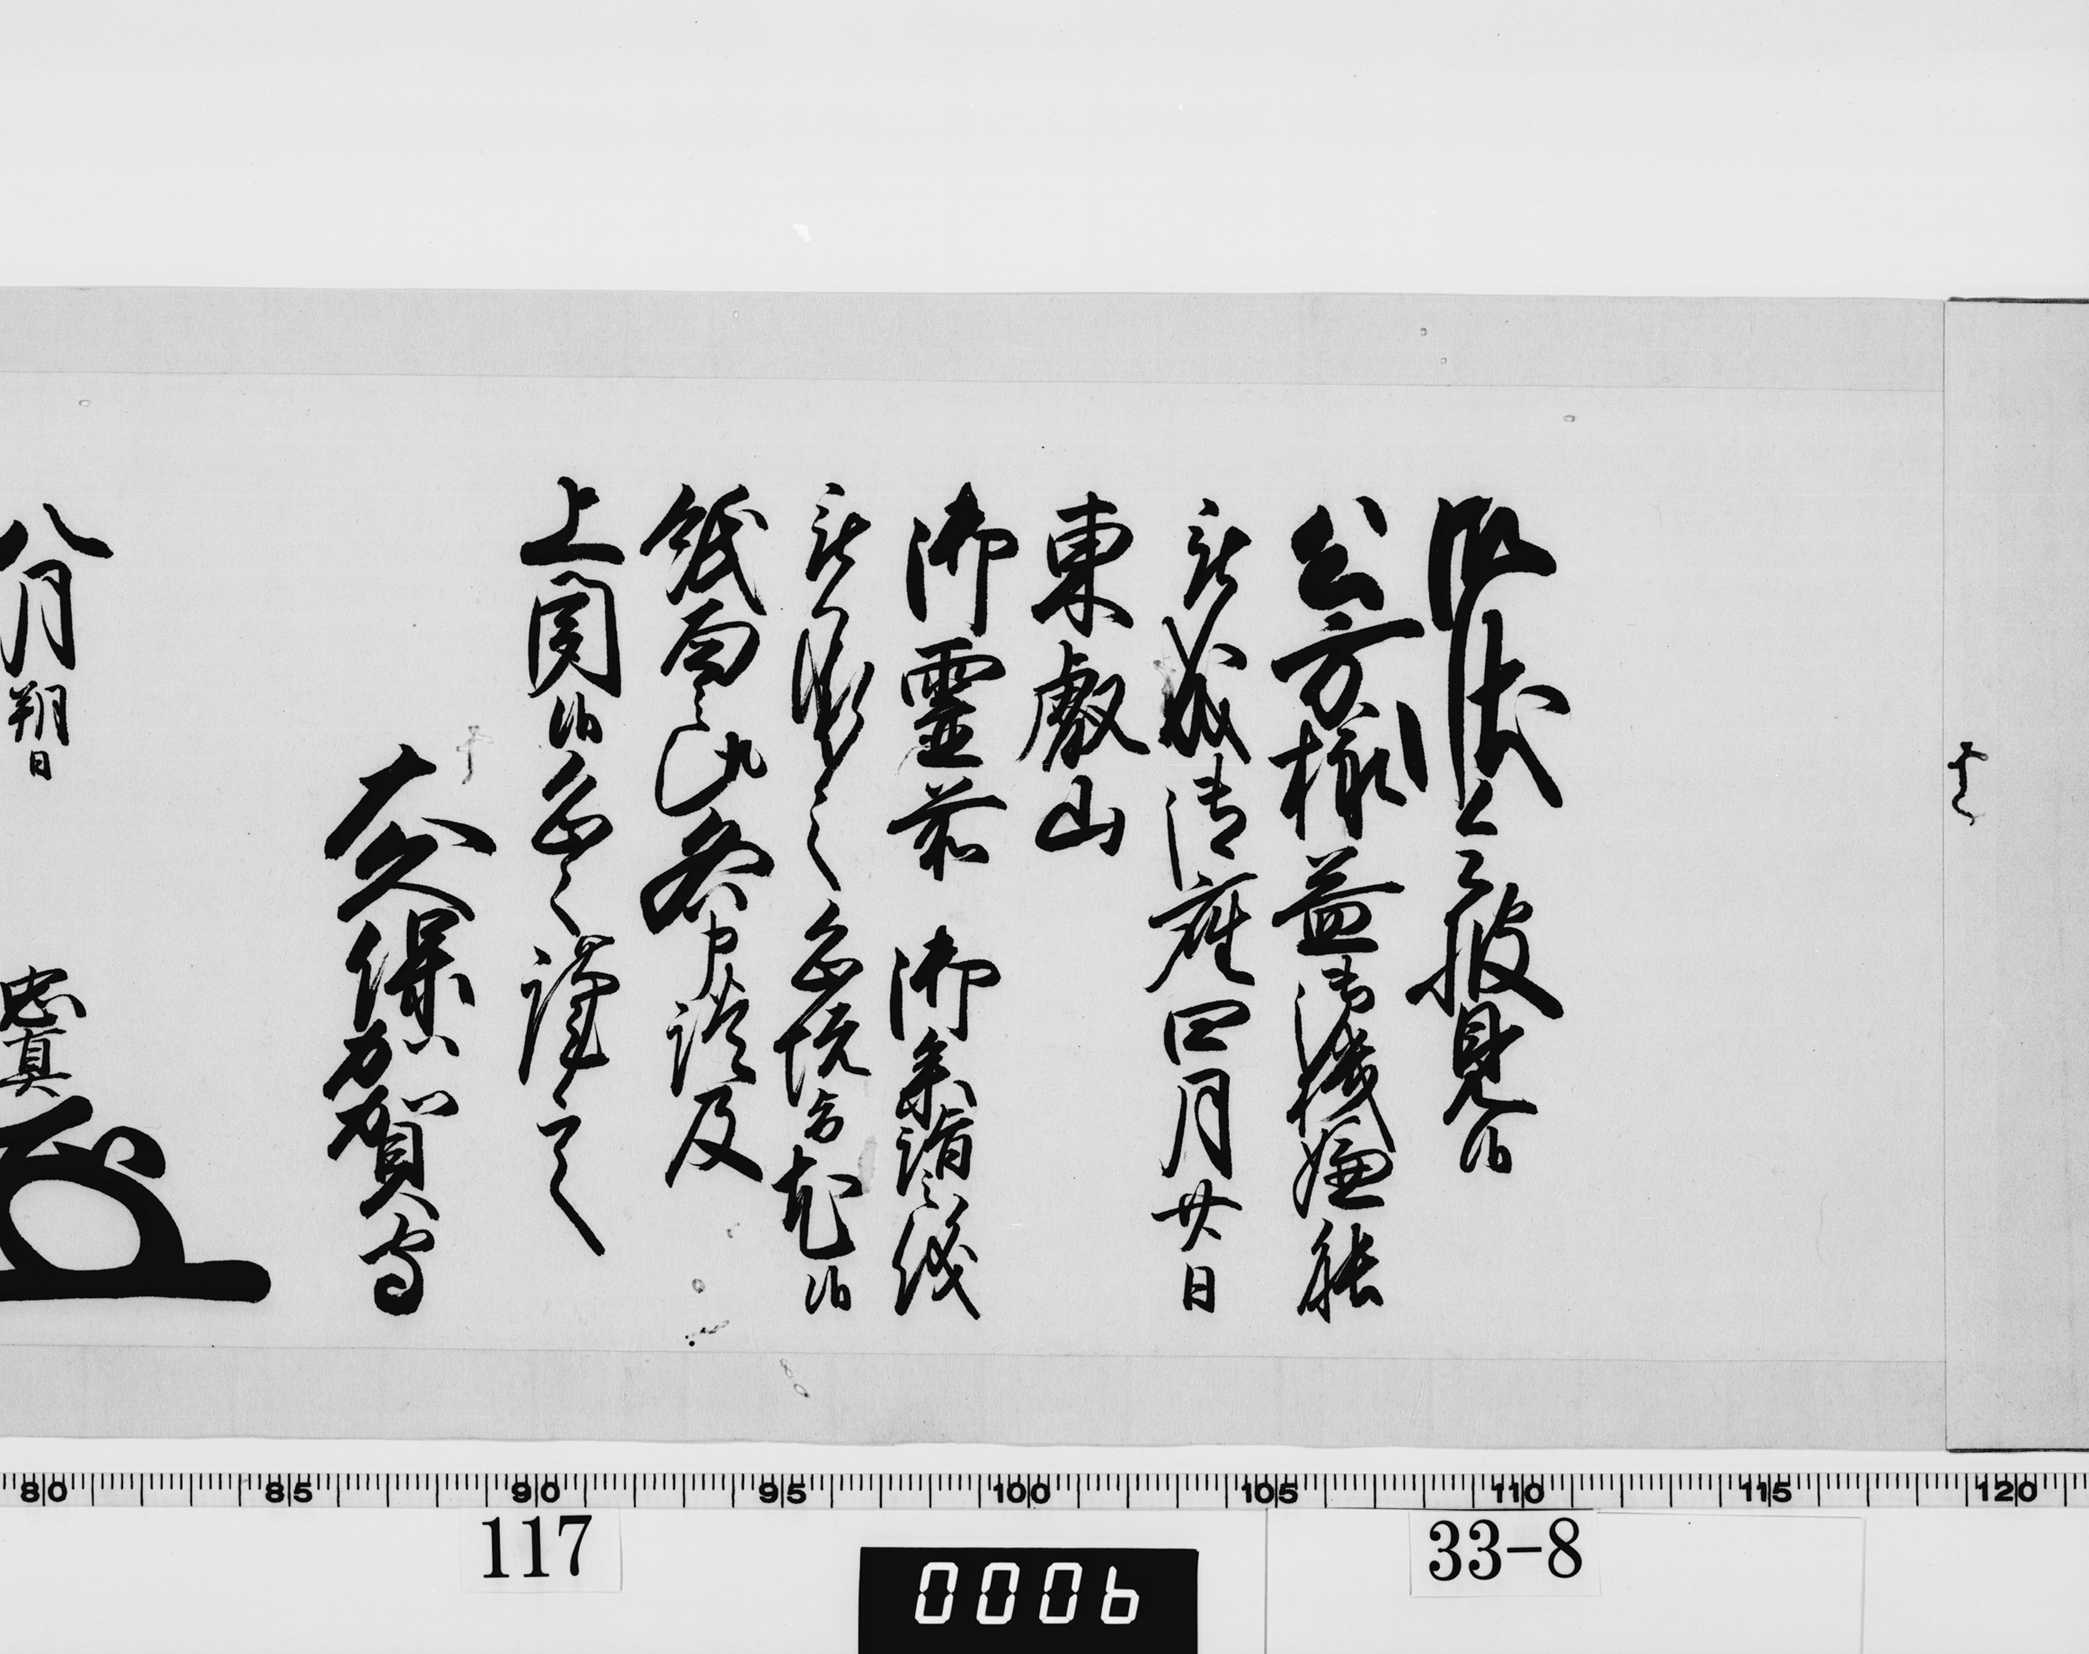 御状令披見候
公方様益御機嫌能
被成御座四月廿日
東叡山
御霊前 御参詣之儀
被承之恐悦旨尤候
紙面之趣各申談及
上聞候恐々謹言
大久保加賀守
八月朔日
忠真
80 85 90 95 100 105 110 115 120
117
0006
33-8